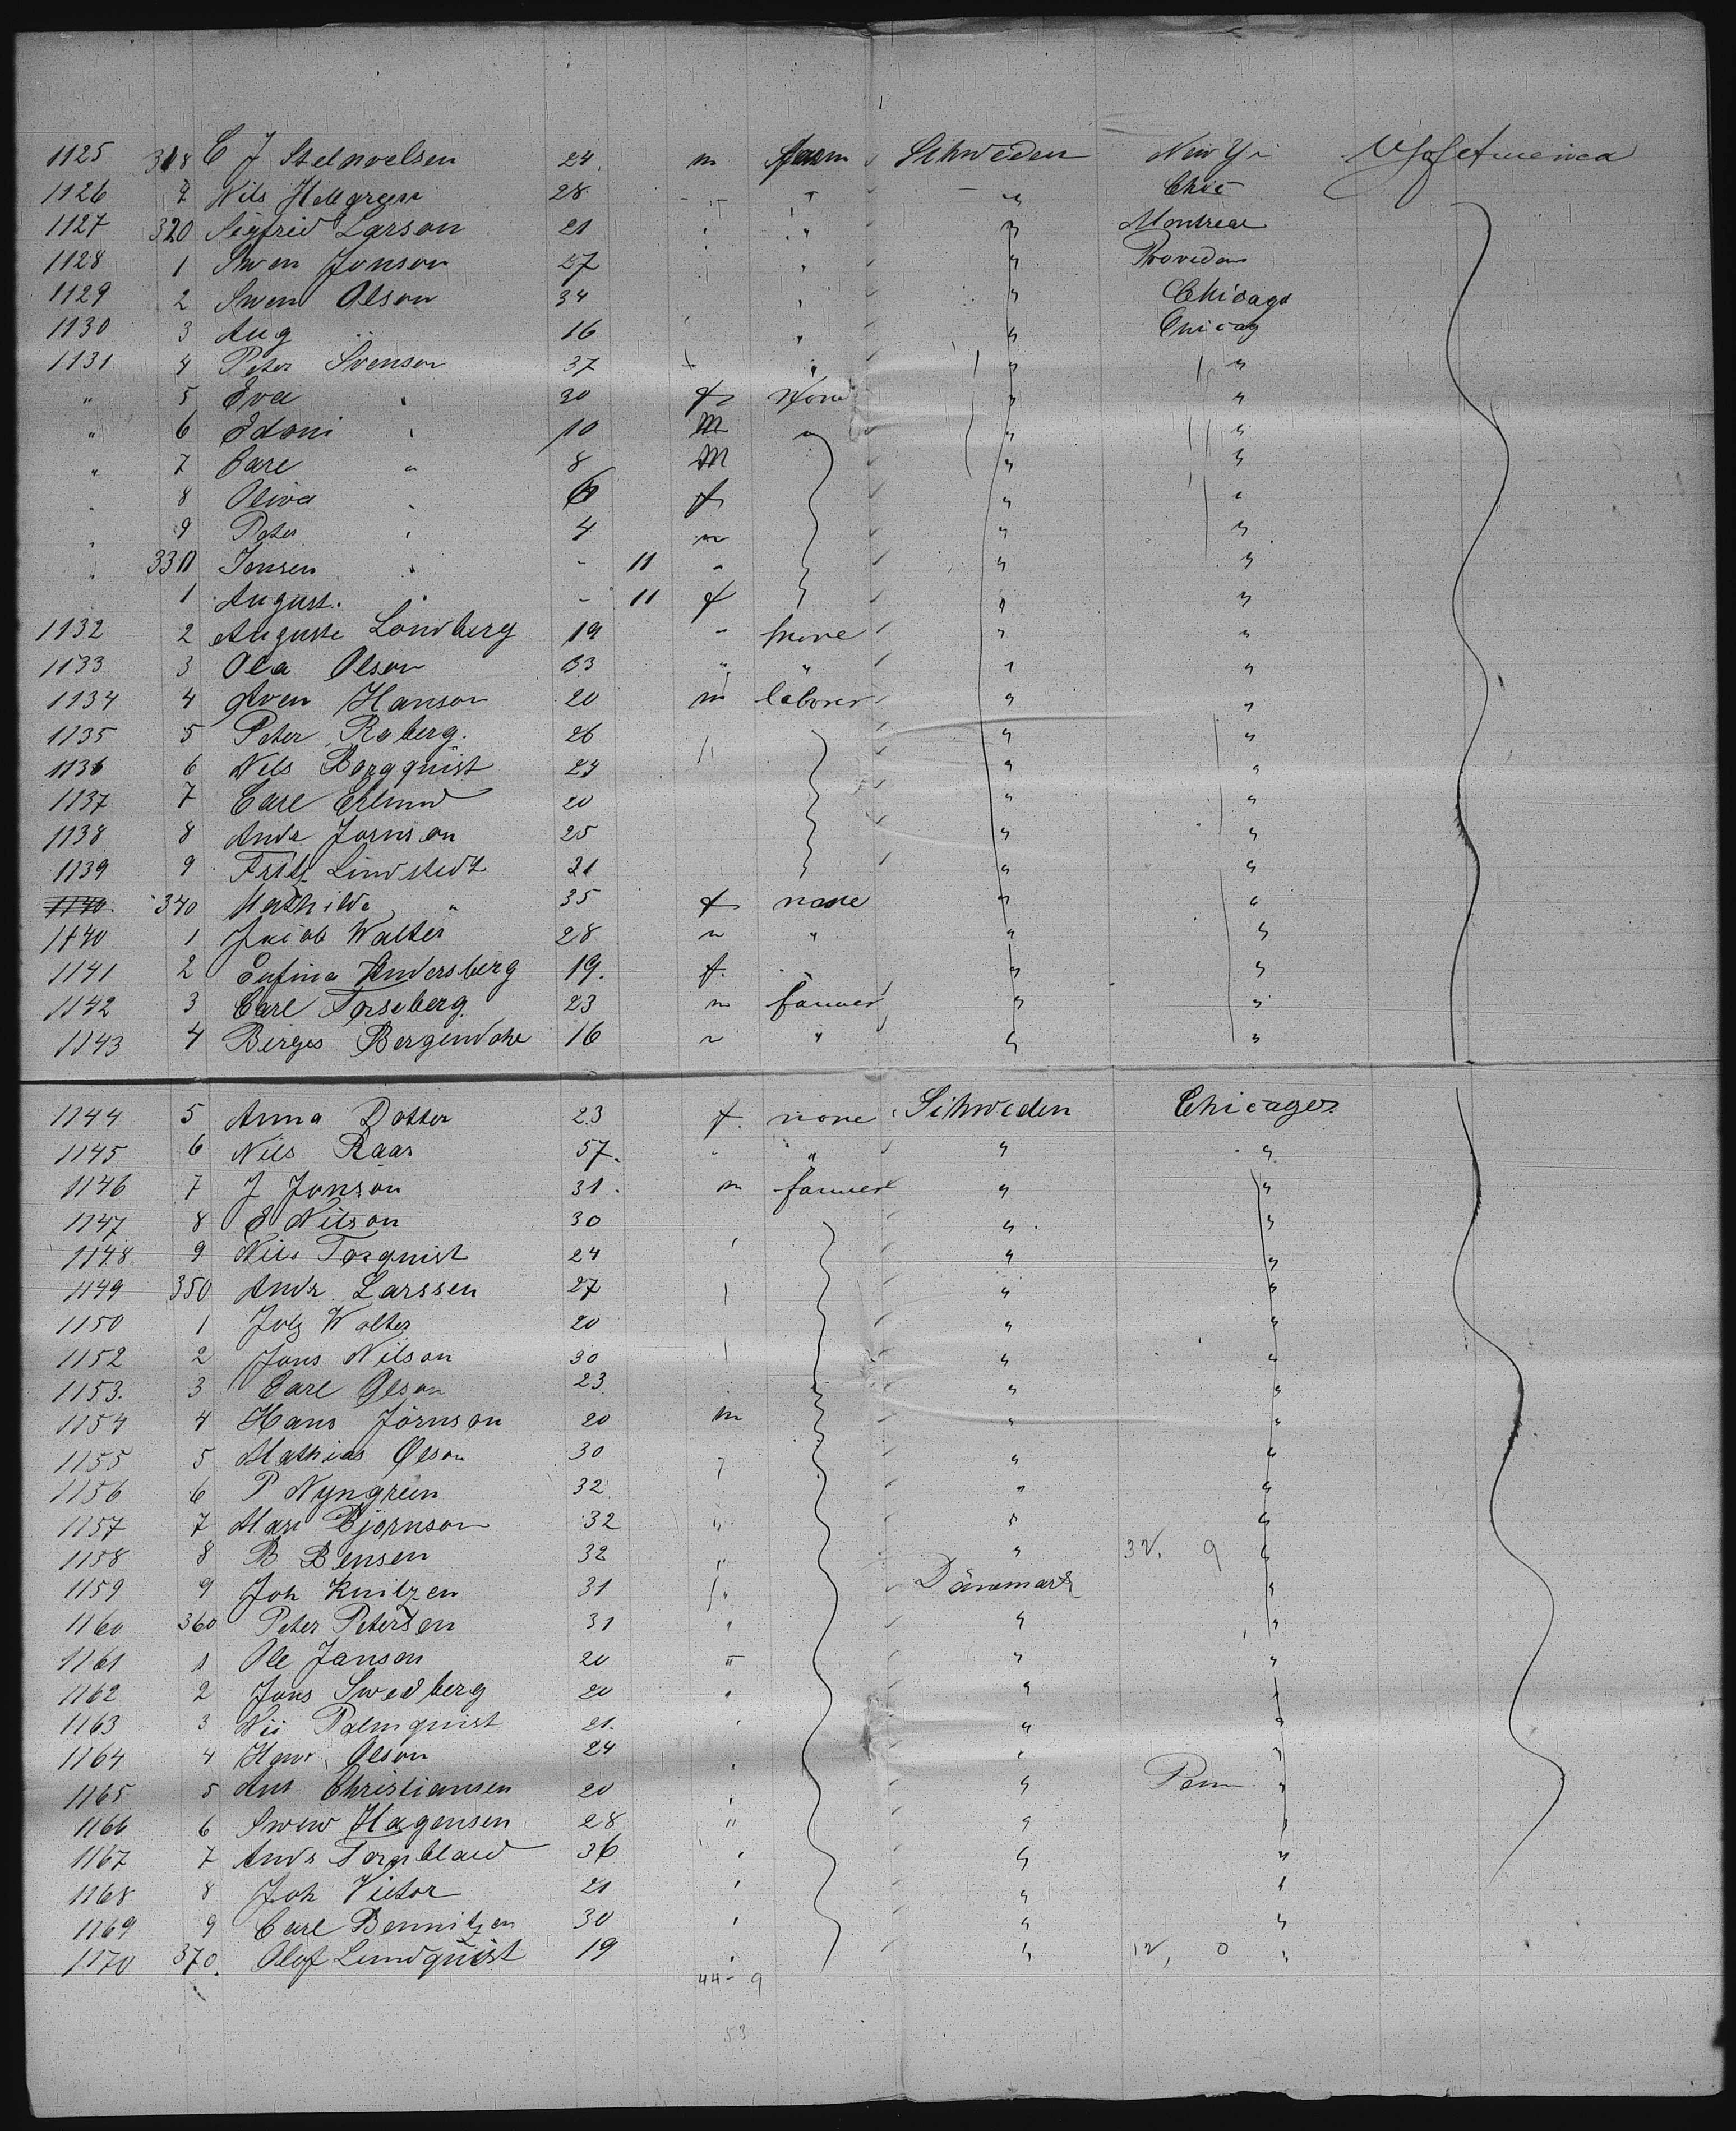 1125 318 C J Stelnoelsen 24 m farm Schweden New Y U S of America
1126 9 Nils Hallgreen 28 " " " Chic
1127 320 Sigfrid Larson 21 " " " Montreal
1128 1 Swen Jonson 27 " " Providen
1129 2 Swen Olson 34 " " Chicago
1130 3 Aug " 16 " " Chicag
1131 4 Peter Svenson 37 " " "
" 5 Eva " 30 f None " "
" 6 Edoni " 10 m " " "
" 7 Carl " 8 m " "
" 8 Oliva " 6 f " "
" 9 Peter " 4 m " "
" 330 Jensen " - 11 " " "
1 August. " - 11 f " "
1132 2 Auguste Londberg 19 " none " "
1133 3 Ola Olson 33 " " " "
1134 4 Sven Hanson 20 m laborer " "
1135 5 Peter Roberg. 26 " " "
1136 6 Nels Borgquist 24 " "
1137 7 Carl Eklund 20 " "
1138 8 Andr Jornson 25 " "
1139 9 Fritz Lindstedt 21 " "
1140 340 Mathilde " 35 f none " "
1140 1 Jacob Walter 28 m " " "
1141 2 Eufina Andersberg 19. f. " "
1142 3 Carl Forseberg 23 m farmer " "
1143 4 Birges Bergendahl 16 " " " "
1144 5 Anna Dotter 23 f. none Schweden Chicago
1145 6 Nils Raas 57. " " " "
1146 7 J Jonson 31. m farmer " "
1147 8 E Nilson 30 " "
1148 9 Nils Torquist 24 " "
1149 350 Andr Larssen 27 " "
1150 1 Joh Walter 20 " "
1152 2 Jons Nilson 30 " "
1153. 3 Carl Olson 23 " "
1154 4 Hans Jörnson 20 m " "
1155 5 Mathias Olson 30 " "
1156 6 P Nyngreen 32 " "
1157 7 Mari Björnson 32 " " "
1158 8 B Bensen 32 " " 32, 9 "
1159 9 Joh Knitzen 31 " Dänemark "
1160 360 Peter Petersen 31 " " "
1161 1 Ole Janson 20 " " "
1162 2 Jons Swedberg 20 " " "
1163 3 Nii Palmquist 21. " " "
1164 4 Hans Olson 24 " " "
1165 5 Ant Christiansen 20 " " Penn "
1166 6 Swen Hagensen 28 " " "
1167 7 Andr Tornblad 36 " " "
1168 8 Joh Victor 21 " " "
1169 9 Carl Bennitzen 30 " " "
1170 370. Olof Lundquist 19 " " 12, 0 "
44 - 9
53